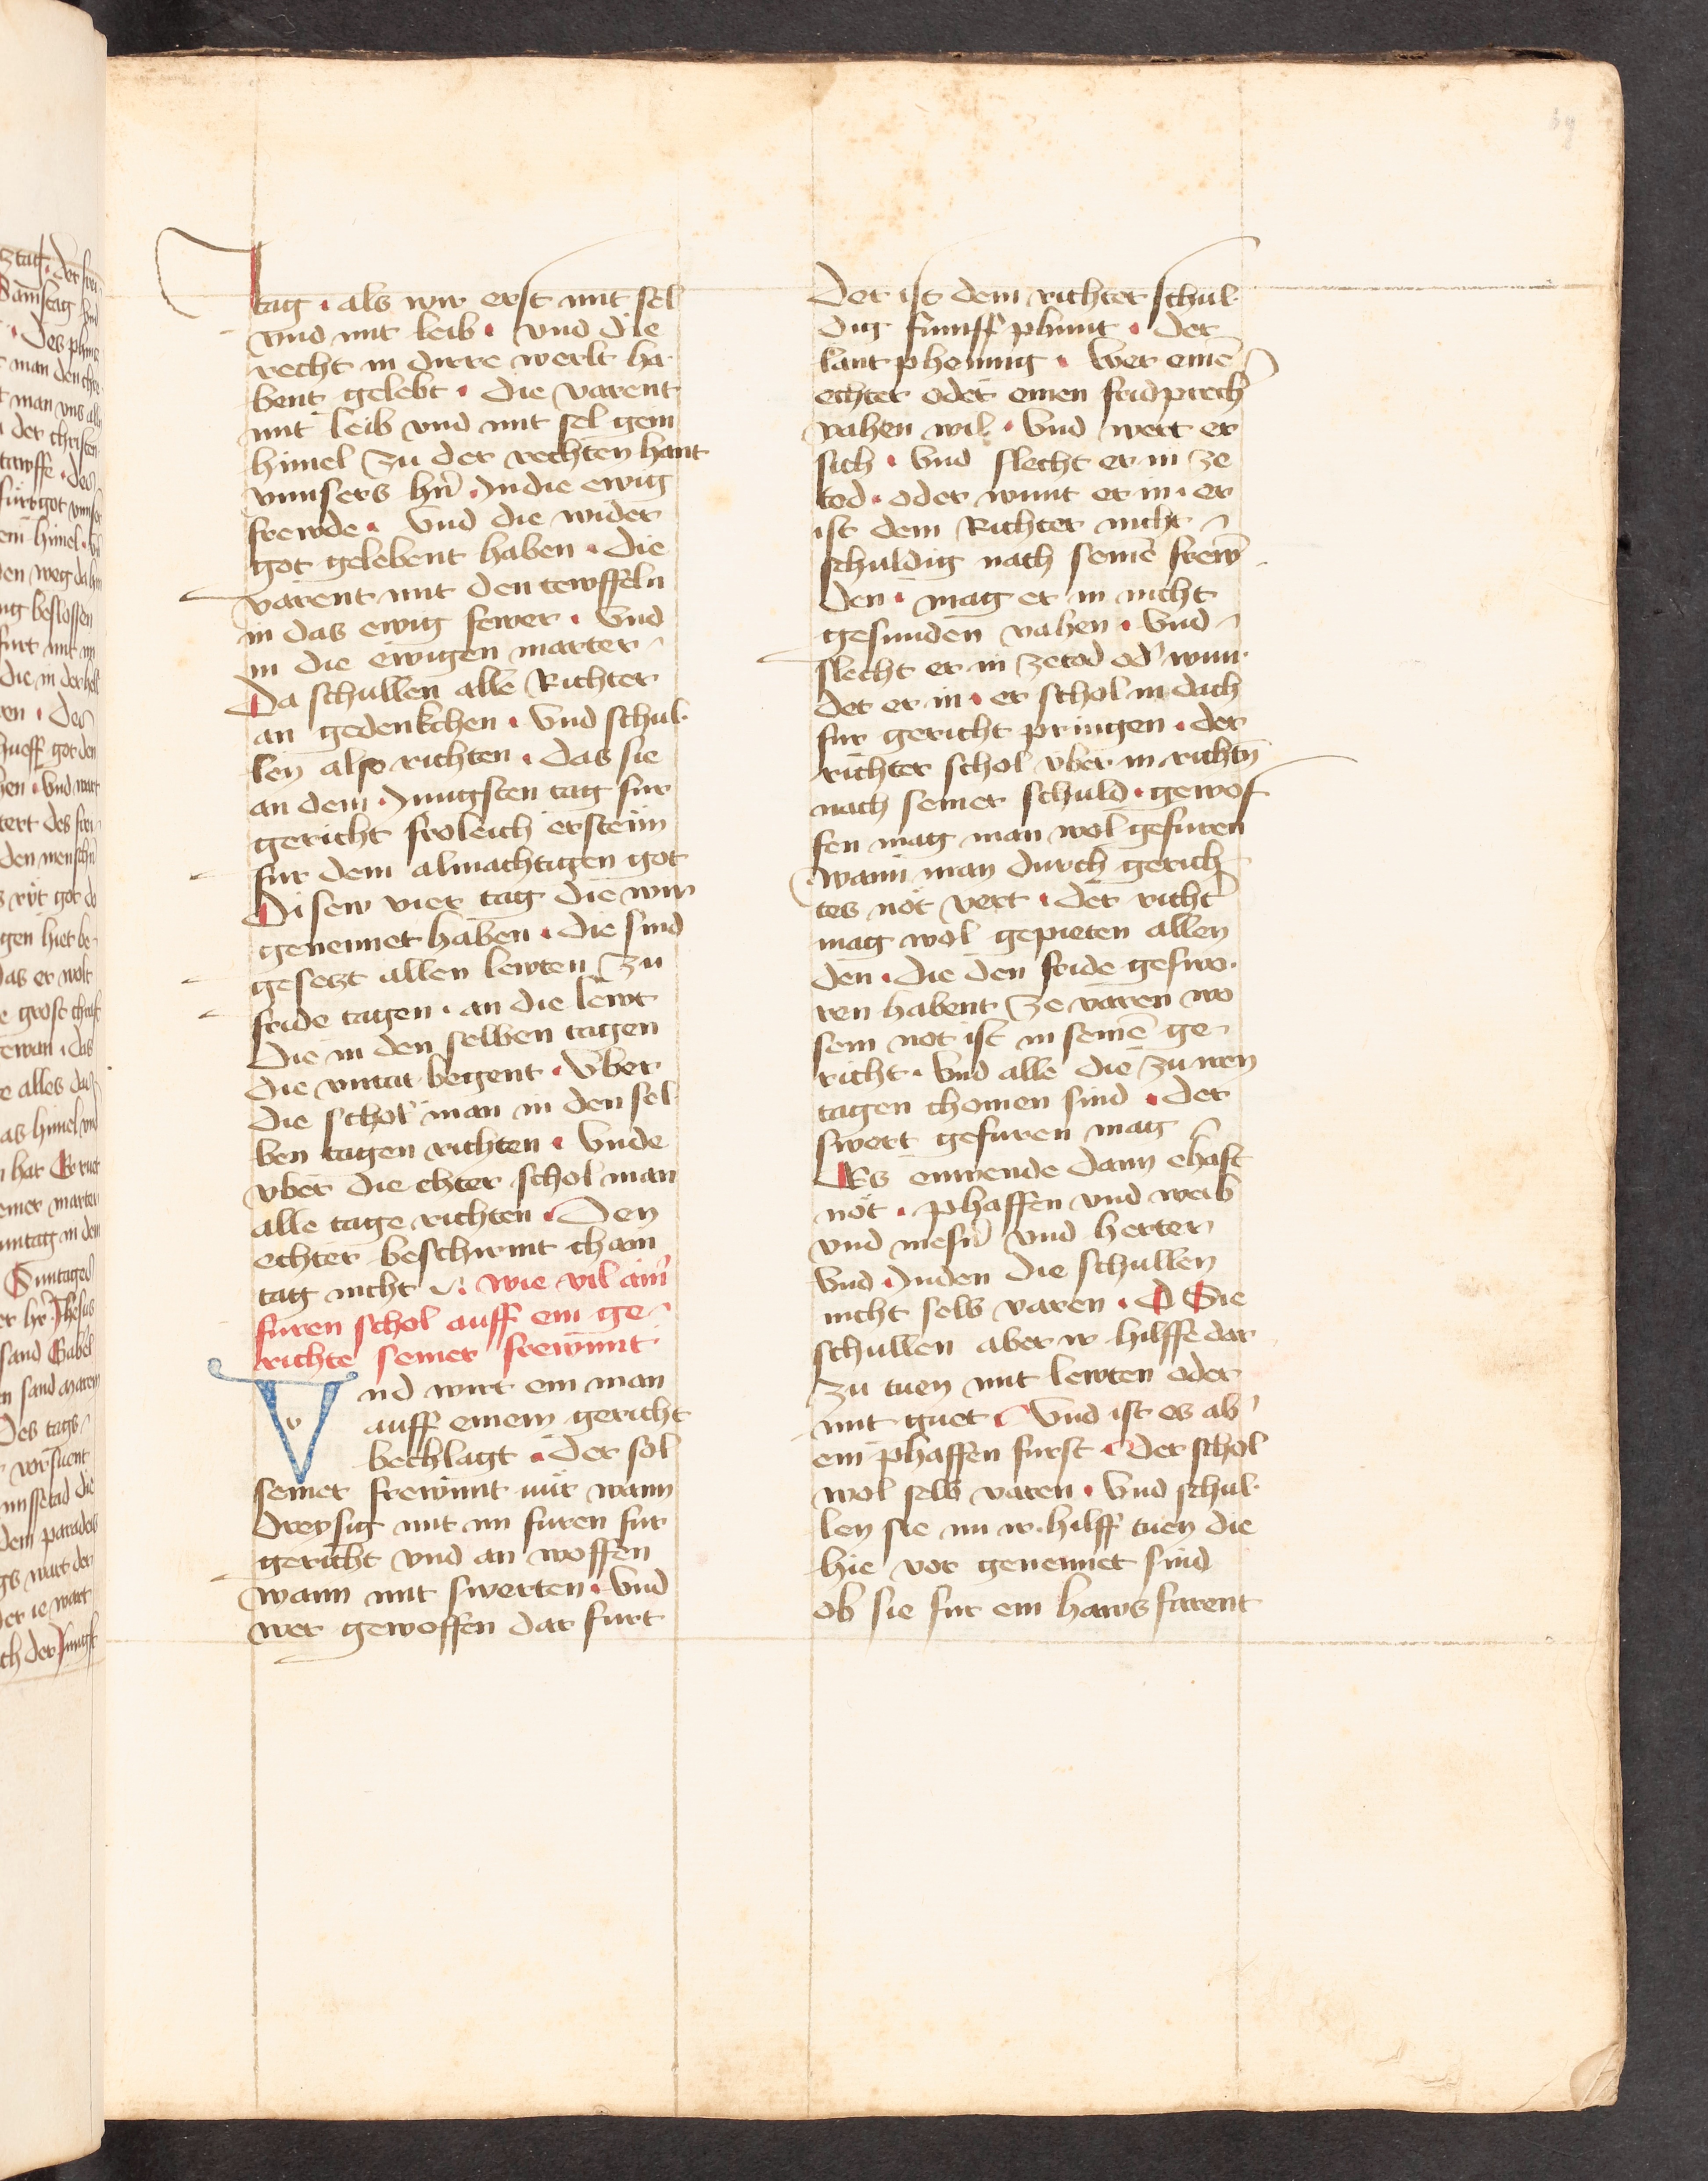 tag · als wir erst mit sel
vnd mit leib · vnd die
recht in dirre werlt ha-
bent gelebt · die varent
mit leib vnd mit sel gein
himel zu der rechten hant
vnnsers hn̄ · Jn die ewig
frewde · Vnd die wider
got gelebent haben · die
varent mit den tewffeln
in das ewig fewer · Vnd
in die ewigen marter
Da schullen alle Richter
an gedenkchen · Vnd schul-
len also richten · das sie
an dem Jungsten tag fur
gericht froleich ersteīn
fur dem almachtigen got
Disew vier tag die wir
genennet haben · die sind
gesetzt allen lewten zu
fride tagen · an die lewt
Die in den selben tagen
die vntat begent · Vber
die schol man in den sel-
ben tagen richten · Vnde
vber die chter schol man
alle tage richten · Den
echter beschirmt chain
tag nicht · wie vil ain̄
furen schol auff ein ge-
richte seiner frewnnt
Vnd wirt ein man
auff einem gericht
bechlagt · der sol
seiner frewnnt nür wann
dreysig mit im furen fur
gericht vnd an woffen
wann mit swerten · Vnd
wer gewoffen dar furt
Der ist dem richter schul-
dig fumff phunt · der
lantphening · Wer einē
echter oder einen fridprech̄
vahen wil · Vnd wert er
sich · Vnd slecht er in ze
tod · oder wunt er in · er
ist dem Richter nicht
schuldig nach seinē frew-
den · mag er in nicht
gesunden vahen · Vnd
slecht er in zetod od' wun-
det er in · er schol in dach
fur gericht pringen · der
richter schol vber in richtn̄
nach seiner schuld · gewof-
fen mag man wol gefuren
wann man durch gerich-
tes nöt vert · der richt̄
mag wol gepieten allen
den · die den fride geswo-
ren habent ze varen wo
sein not ist in seinē ge-
richt · Vnd alle die zu iren
tagen chomen sind · der
swert gefuren mag
Es enwende dann ehaft
nöt · phaffen vnd weib
vnd mesn̄ vnd herter
Vnd Juden die schullen
nicht selb varen · Sie
schullen aber ir hilffe dar
zu tuen mit lewten oder
mit guet · Vnd ist es ab'
ein phaffen furst · der schol
wol selb varen · Vnd schul-
len sie im ir hilff tuen die
hie vor genennet sind
ob sie fur ein haws farent